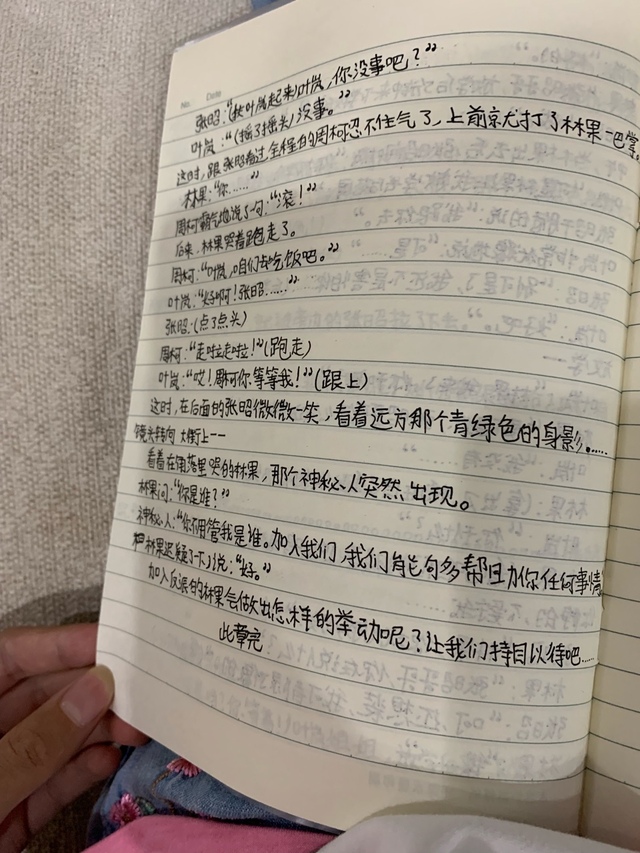 No. Date
张昭:“(扶叶岚起来)叶岚,你没事吧?”
叶岚:“(摇了摇头)没事。”
这时,跟张昭看过全程的周柯忍不住气了,上前就打了林果一巴掌。
林果:“你……”
周柯霸气地说了句:“滚!”
后来,林果哭着跑走了。
周柯:“叶岚,咱们去吃饭吧。”
叶岚:“好啊!张昭……”
张昭:(点了点头)
周柯:“走啦走啦!”(跑走)
叶岚:“哎!周柯你等等我!”(跟上)
这时,在后面的张昭微微一笑,看着远方那个青绿色的身影……
镜头转向 大街上——
看着在角落里哭的林果,那个神秘人突然出现。
林果问:“你是谁?”
神秘人:“你不用管我是谁。加入我们,我们能够多帮助你任何事情。
林果迟疑了一下,说:“好。”
加入反派的林果会做出怎样的举动呢?让我们持目以待吧……
此章完